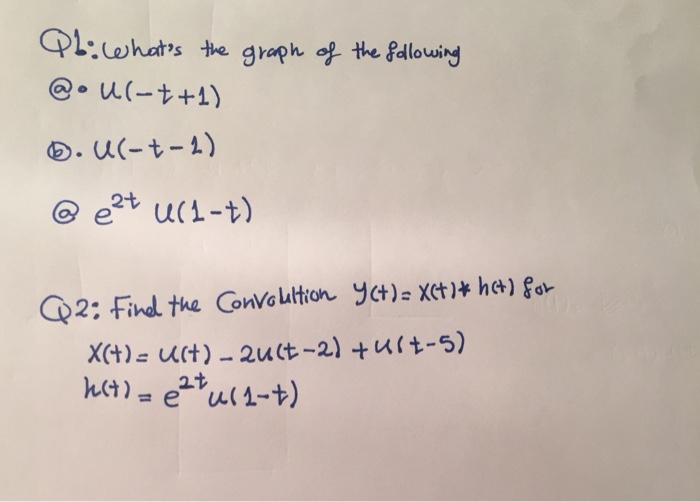 Q1: What's the graph of the following
ⓐ. u(-t+1)
ⓑ. u(-t-1)
@ e^2t u(1-t)
Q2: Find the Convolultion y(t)= x(t)* h(t) for
X(t)= u(t) - 2u(t-2) + u(t-5)
h(t) = e^2t u(1-t)